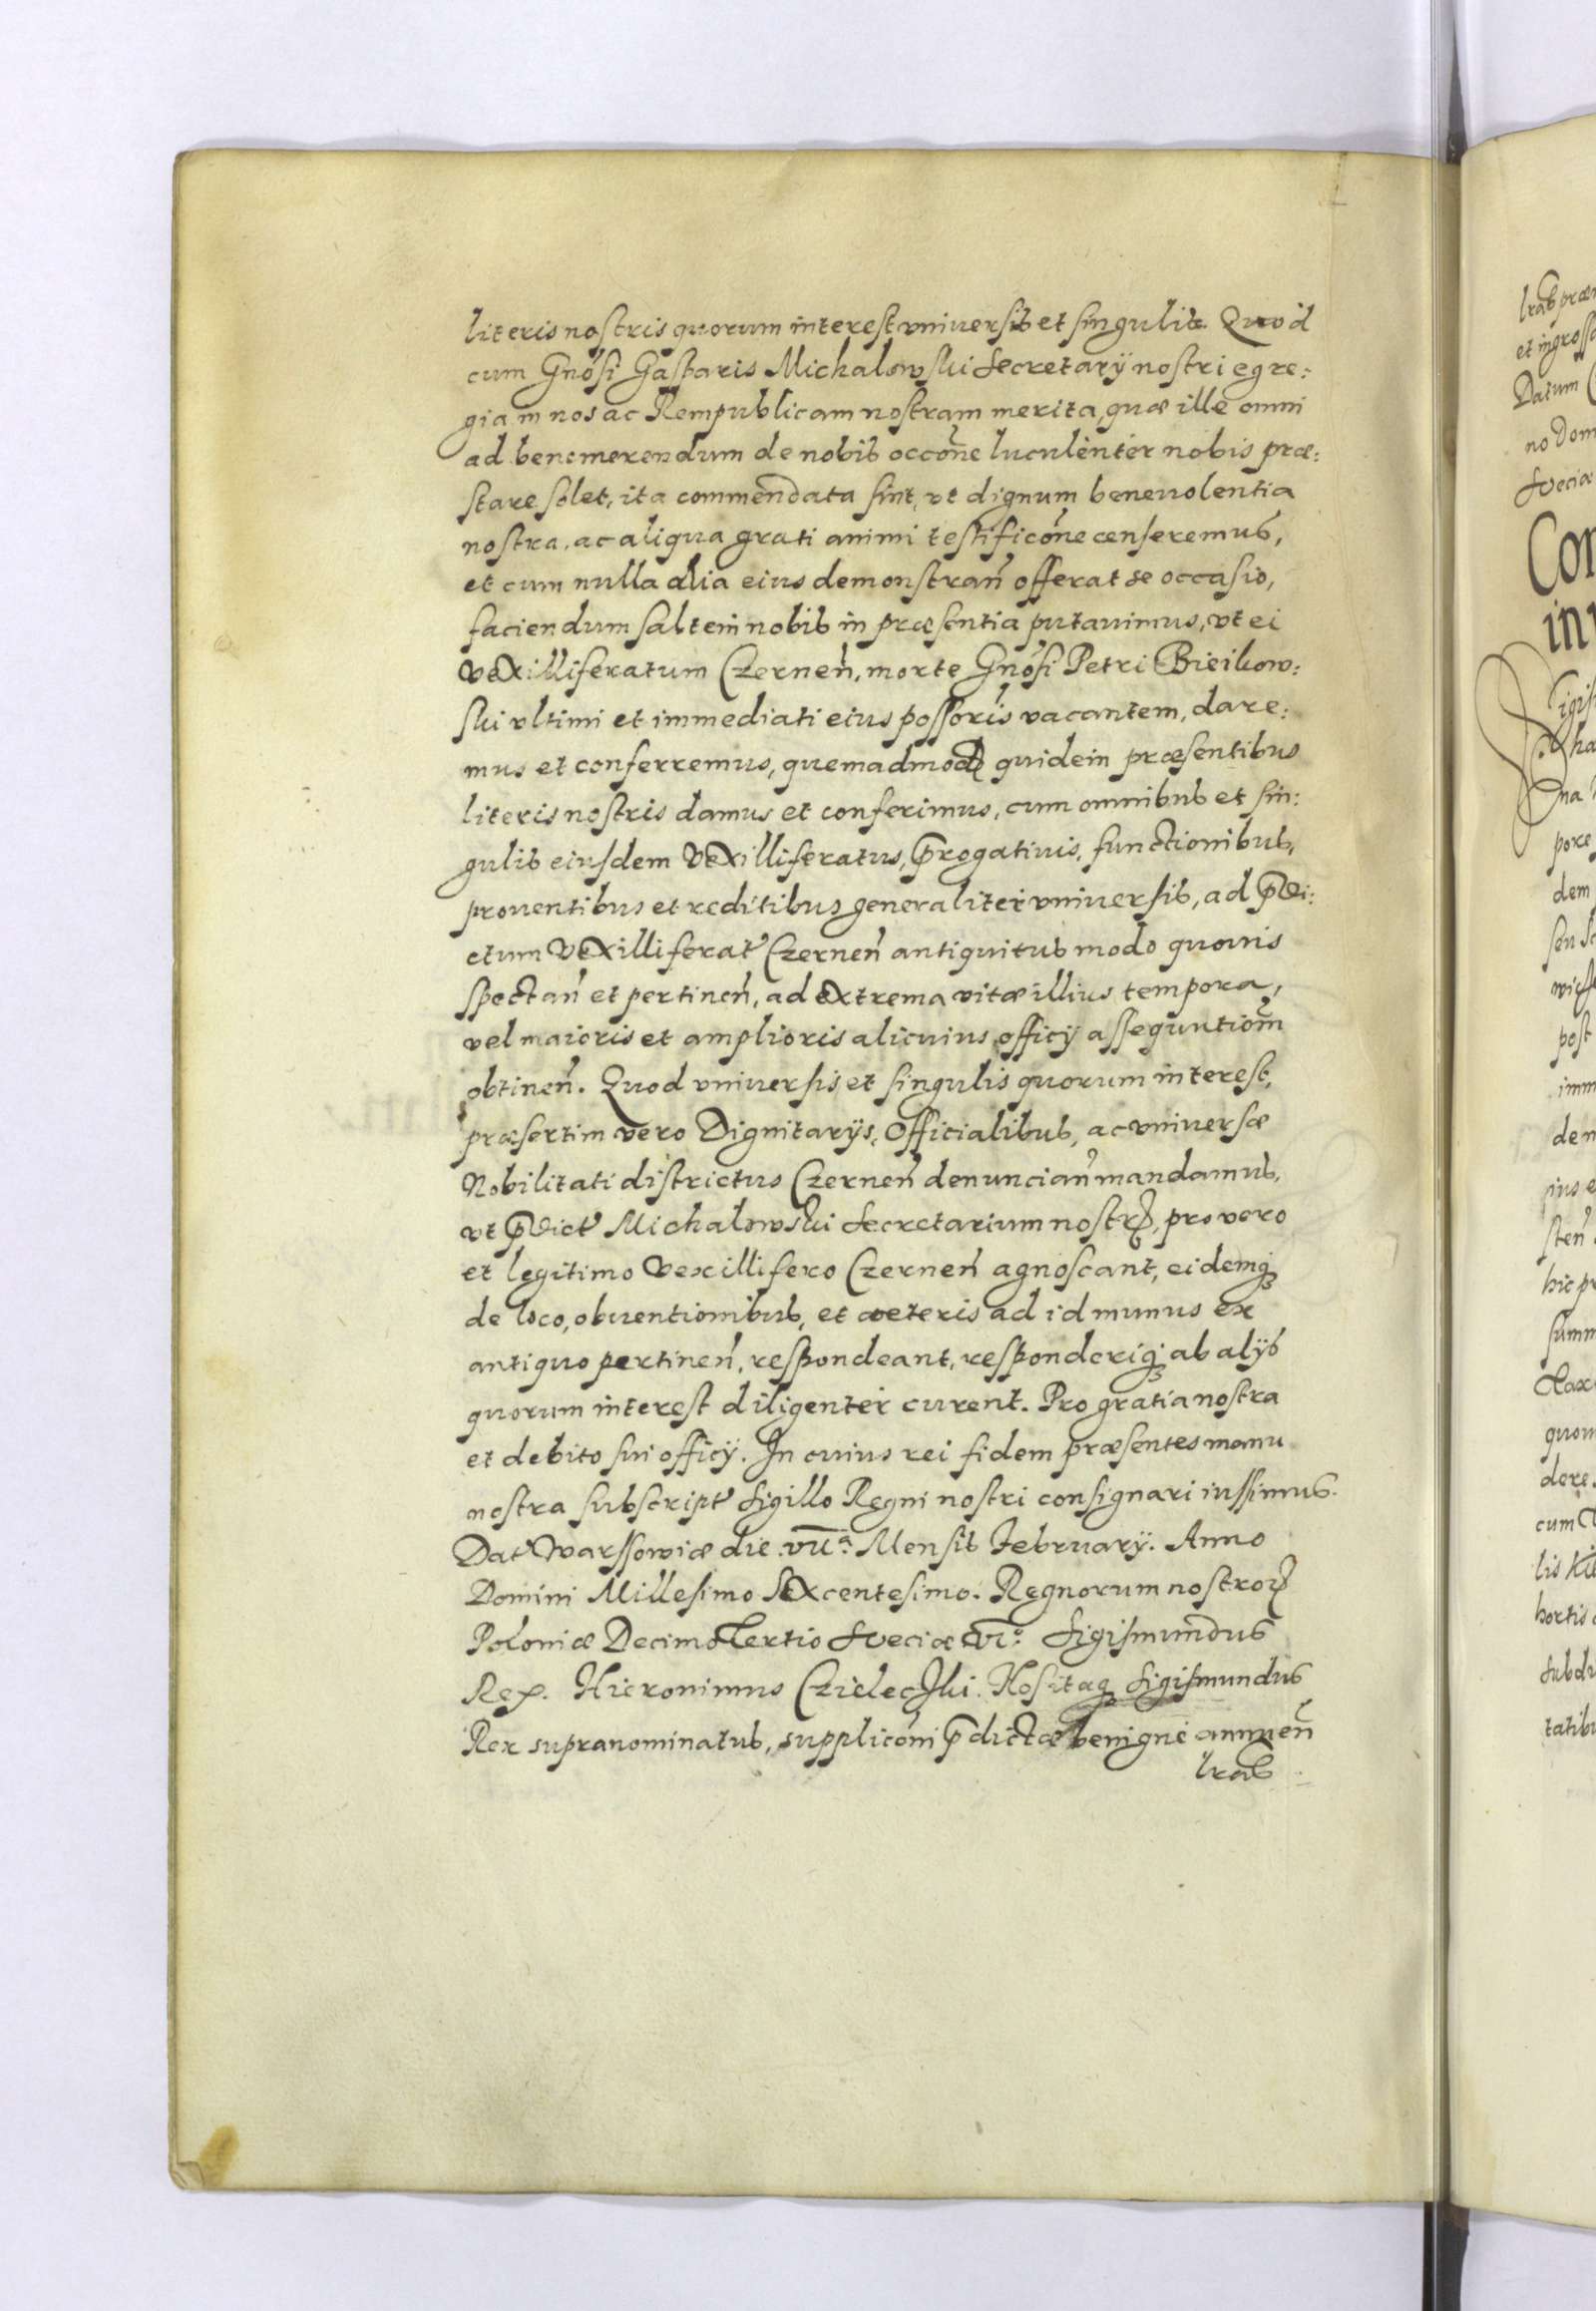 literis nostris quorum interest vniuersis et singulis. Quod
cum Gnosi Gasparis Michalowski Secretarÿ nostri egre:
gia in nos ac Rempublicam nostram merita, quæ ille omni
ad benemerendum de nobis occõne luculenter nobis præ:
stare solet, ita commendata sint, vt dignum beneuolentia
nostra, ac aliqua grati animi testificõne censeremus,
et cum nulla alia eius demonstran̄ offerat se occasio,
faciendum saltem nobis in præsentia putauimus, vt ei
Vexilliferatum Czernen̄, morte Gnosi Petri Bieikow:
ski vltimi et immediati eius possoris vacantem, dare:
mus et conferremus, quemadmodꝫ quidem præsentibus
literis nostris damus et conferimus, cum omnibus et sin:
gulis eiusdem Vexilliferatus, p̄rogatiuis, functionibus,
prouentibus et reditibus generaliter vniuersis, ad p̄di:
ctum Vexilliferat' Czernen̄ antiquitus modo quouis
spectan̄ et pertinen̄, ad extrema vitæ illius tempora,
vel maioris et amplioris alicuius officÿ assequutiom̄
obtinen̄. Quod vniuersis et singulis quorum interest,
præsertim vero Dignitarÿs, Officialibus, ac vniuersæ
Nobilitati districtus Czernen̄ denuncian̄ mandamus,
vt p̄dict' Michalowski Secretarium nostrꝫ, pro vero
et legitimo Vexillifero Czernen̄ agnoscant, eidemqꝫ
de loco, obuentionibus, et cæteris ad id munus ex
antiquo pertinen̄, respondeant, responderiqꝫ ab alÿs
quorum interest diligenter curent. Pro gratia nostra
et debito sui officÿ. In cuius rei fidem præsentes manu
nostra subscript' Sigillo Regni nostri consignari iussimus.
Dat' Warssowiæ die VII.ª Mensis Februarÿ. Anno
Domini Millesimo Sexcentesimo. Regnorum nostroꝝ
Poloniæ Decimo Tertio Sueciæ VI.º Sigismundus
Rex. Hieronimus Czielecski. Nos itaqꝫ Sigismundus
Rex supranominatus, supplicõni p̄dictæ benigne annuen̄
lras